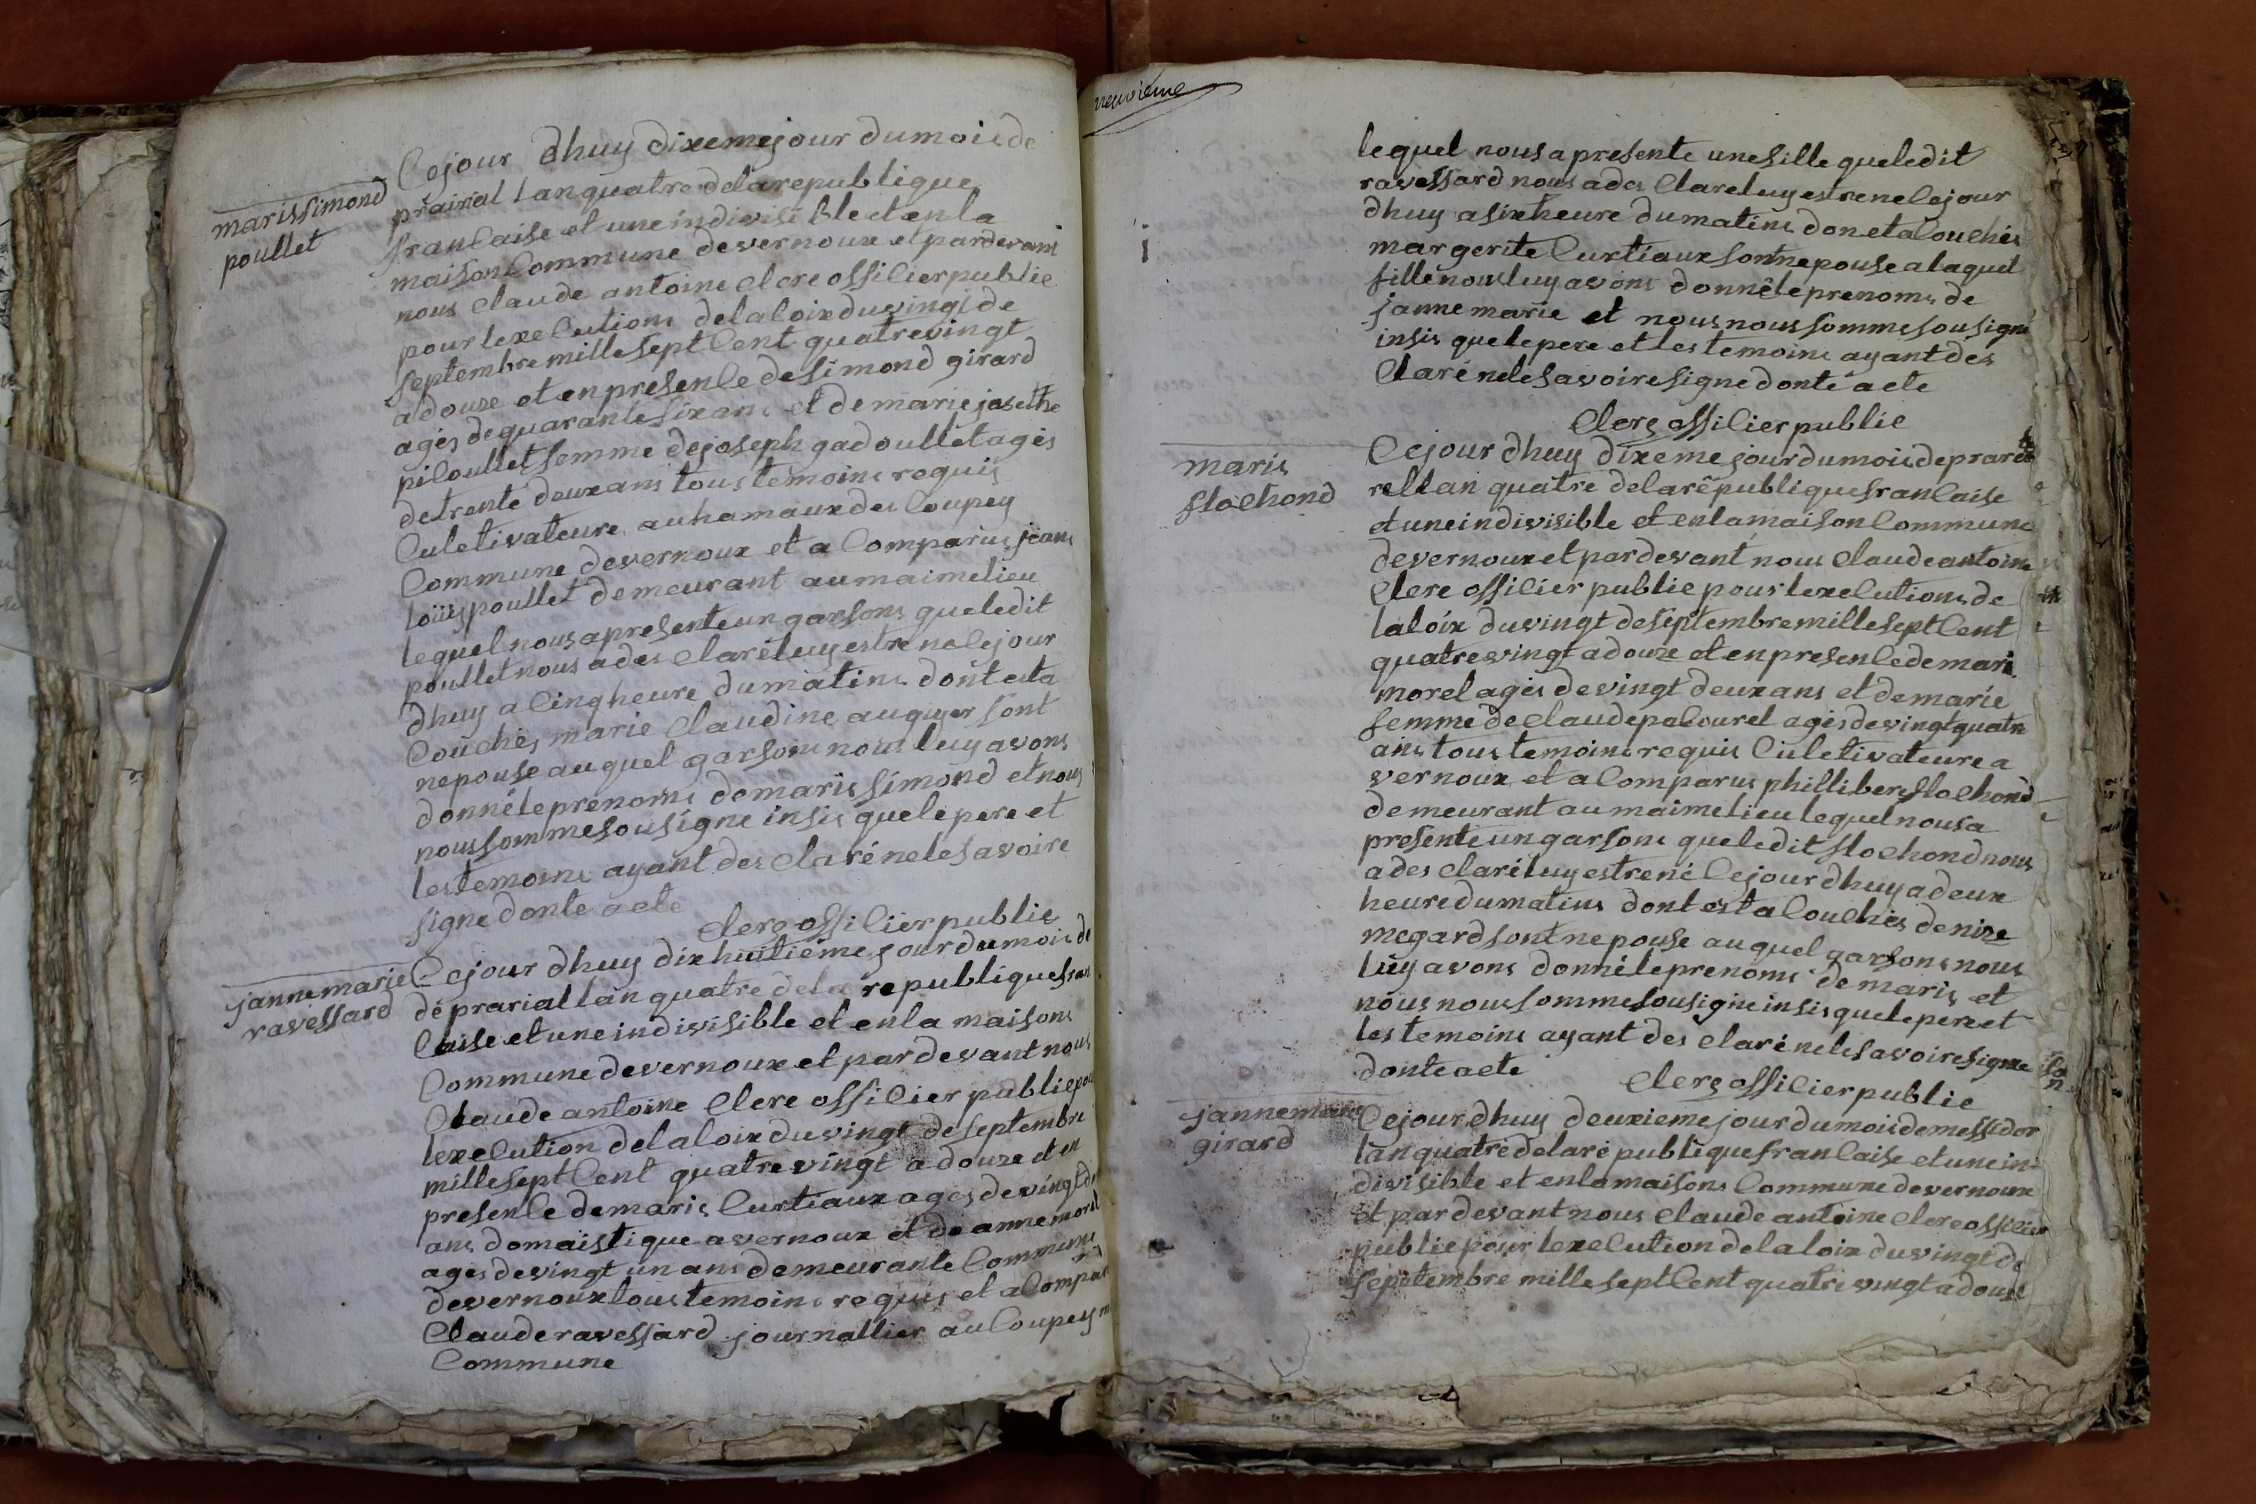 maris simond
poullet
Cejour dhuy dixeme jour dumois de
prairial lan quatre delarepublique
francaise et une indivisible et enla
maison Commune devernoux et pardevant
nous claude antoine clerc officilier public
pour lexecutions delaloix duvingt de
septembre mille sept Cent quatrevingt
adouze et en presence de simond girard
agès de quarante six ans et de marie josethe
piloullet femme dejoseph gadoullet agès
detrente deux ans tous temoins requis
Culetivateure auhamaux des Coupey
Commune devernoux et a Comparus jean
loüis poullet demeurant aumaimelieu
lequel nous apresente un garsons queledit
poullet nous ades claré luy estre né Cejour
dhuy a Cinq heure dumatins dont esta
Couchés marie claudine auguyer sont
nepouse auquel garsons nous luy avons
donné le prenoms demaris simond et nous
nous somme sousigne insis quele pere et
les temoins ayant des claré nele savoire
signe donte acte
clerc officilier public
jannemarie
ravessard
Cejour dhuy dixhuitiéme jour dumois de
dé prarial lan quatre dela republique fran
Caise et une indivisible et enla maisons
Commune devernoux et par devant nous
Claude antoine Clerc officilier public pour
lexecution delaloix duvingt deseptembre
mille sept Cent quatrevingt adouze et en
presence demaris Curtiaux agés devingt
ans domaistique avernoux et de anne morel
agés devingt un ans demeurante Commune
devernoux tous temoins requis et a Comparus
Claude ravessard journallier au Coupey
Commune
neuvieme
lequel nous apresente une fille queledit
ravessard nous ades Clare luy estre ne Cejour
dhuy a six heure dumatins don et a Couchés
margerite Curtiaux sont nepouse alaquel
fille nous luy avons donnéle prenoms de
janne marie et nous nous somme sousigné
insis quele pere et les temoins ayant des
Claré nele savoire signe donte acte
clerc officilier public
maris
flochond
Cejour dhuy dixeme jour dumois de prare
rel lan quatre delarépublique francaise
et une indivisible et enla maison Commune
devernoux et pardevant nous claude antoine
Clerc officilier public pour lexecutions de
laloix duvingt deseptembre mille sept Cent
quatrevingt adouze et en presence demarie
morel agés devingt deux ans et demarie
femme de claude palourel agés devingt quatre
ans tous temoins requis Culetivateure a
vernoux et a Comparus phillibere flochond
demeurant aumaimelieu lequel nous a
presente un garsons queledit flochond nous
ades claré luy estre né Cejour dhuy a deux
heure dumatins dont est a Couchés denise
megard sont nepouse auquel garsons nous
luy avons donnéle prenoms demaris et
nous nous somme sousigne insis quele pere et
les temoins ayant des claré nele savoire signe
donte acte
Clerc officilier public
jannemarie
girard
Cejour dhuy deuxieme jour dumois demessidor
lan quatre delaré publique francaise et une in
divisible et enla maisons Commune devernoux
et pardevant nous claude antoine Clerc officilier
public pour lexecution delaloix duvingt de
sepetembre mille sept Cent quatre vingt adouse